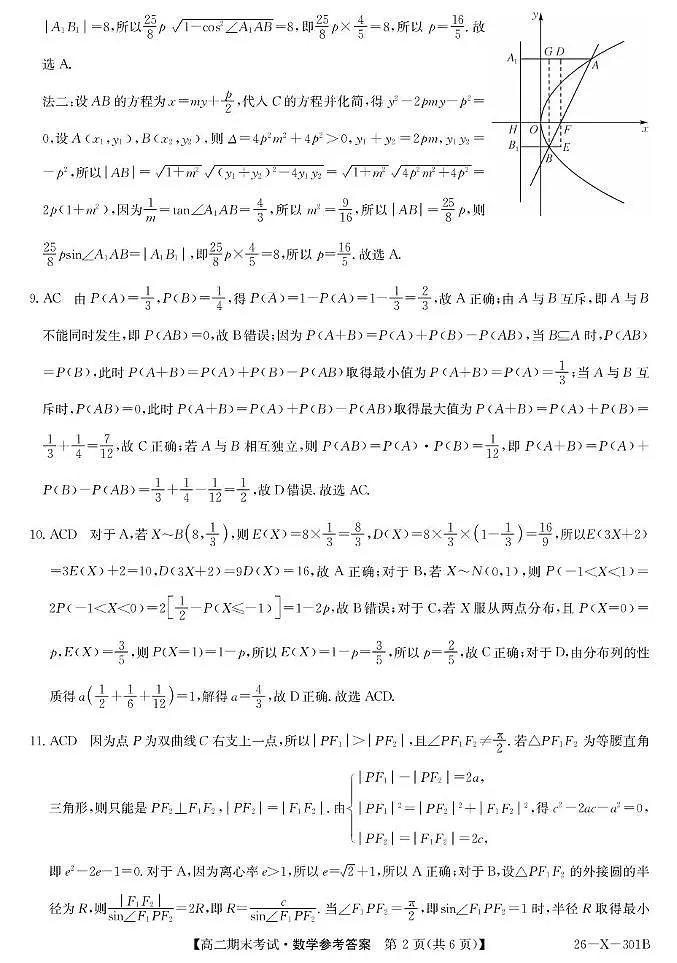 |A₁B₁|=8,所以25/8 p √(1-cos²∠A₁AB)=8,即25/8 p×4/5=8,所以 p=16/5. 故
选 A.
法二:设 AB 的方程为 x=my+p/2,代入 C 的方程并化简,得 y²-2pmy-p²=
0,设 A(x₁,y₁),B(x₂,y₂),则 Δ=4p²m²+4p²>0,y₁+y₂=2pm,y₁y₂=
-p²,所以|AB|=√(1+m²) √((y₁+y₂)²-4y₁y₂)=√(1+m²) √(4p²m²+4p²)=
2p(1+m²),因为1/m=tan∠A₁AB=4/3,所以 m²=9/16,所以|AB|=25/8 p,则
25/8 psin∠A₁AB=|A₁B₁|,即25/8 p×4/5=8,所以 p=16/5. 故选 A.
y
A₁ G D A
H O F x
B₁ B E
9. AC 由 P(A)=1/3,P(B)=1/4,得 P(A̅)=1-P(A)=1-1/3=2/3,故 A 正确;由 A 与 B 互斥,即 A 与 B
不能同时发生,即 P(AB)=0,故 B 错误;因为 P(A+B)=P(A)+P(B)-P(AB),当 B⊆A 时,P(AB)
=P(B),此时 P(A+B)=P(A)+P(B)-P(AB)取得最小值为 P(A+B)=P(A)=1/3;当 A 与 B 互
斥时,P(AB)=0,此时 P(A+B)=P(A)+P(B)-P(AB)取得最大值为 P(A+B)=P(A)+P(B)=
1/3+1/4=7/12,故 C 正确;若 A 与 B 相互独立,则 P(AB)=P(A)·P(B)=1/12,即 P(A+B)=P(A)+
P(B)-P(AB)=1/3+1/4-1/12=1/2,故 D 错误. 故选 AC.
10. ACD 对于 A,若 X~B(8,1/3),则 E(X)=8×1/3=8/3,D(X)=8×1/3×(1-1/3)=16/9,所以E(3X+2)
=3E(X)+2=10,D(3X+2)=9D(X)=16,故 A 正确;对于 B,若 X~N(0,1),则 P(-1<X<1)=
2P(-1<X<0)=2[1/2-P(X≤-1)]=1-2p,故 B 错误;对于 C,若 X 服从两点分布,且 P(X=0)=
p,E(X)=3/5,则 P(X=1)=1-p,所以 E(X)=1-p=3/5,所以 p=2/5,故 C 正确;对于 D,由分布列的性
质得 a(1/2+1/6+1/12)=1,解得 a=4/3,故 D 正确. 故选 ACD.
11. ACD 因为点 P 为双曲线 C 右支上一点,所以|PF₁|>|PF₂|,且∠PF₁F₂≠π/2. 若△PF₁F₂ 为等腰直角
三角形,则只能是 PF₂⊥F₁F₂,|PF₂|=|F₁F₂|. 由{|PF₁|-|PF₂|=2a, |PF₁|²=|PF₂|²+|F₁F₂|², |PF₂|=|F₁F₂|=2c, 得 c²-2ac-a²=0,
即 e²-2e-1=0. 对于 A,因为离心率 e>1,所以 e=√2+1,所以 A 正确;对于 B,设△PF₁F₂ 的外接圆的半
径为 R,则|F₁F₂|/sin∠F₁PF₂=2R,即 R=c/sin∠F₁PF₂. 当∠F₁PF₂=π/2,即 sin∠F₁PF₂=1 时,半径 R 取得最小
【高二期末考试·数学参考答案 第 2 页(共 6 页)】 26-X-301B